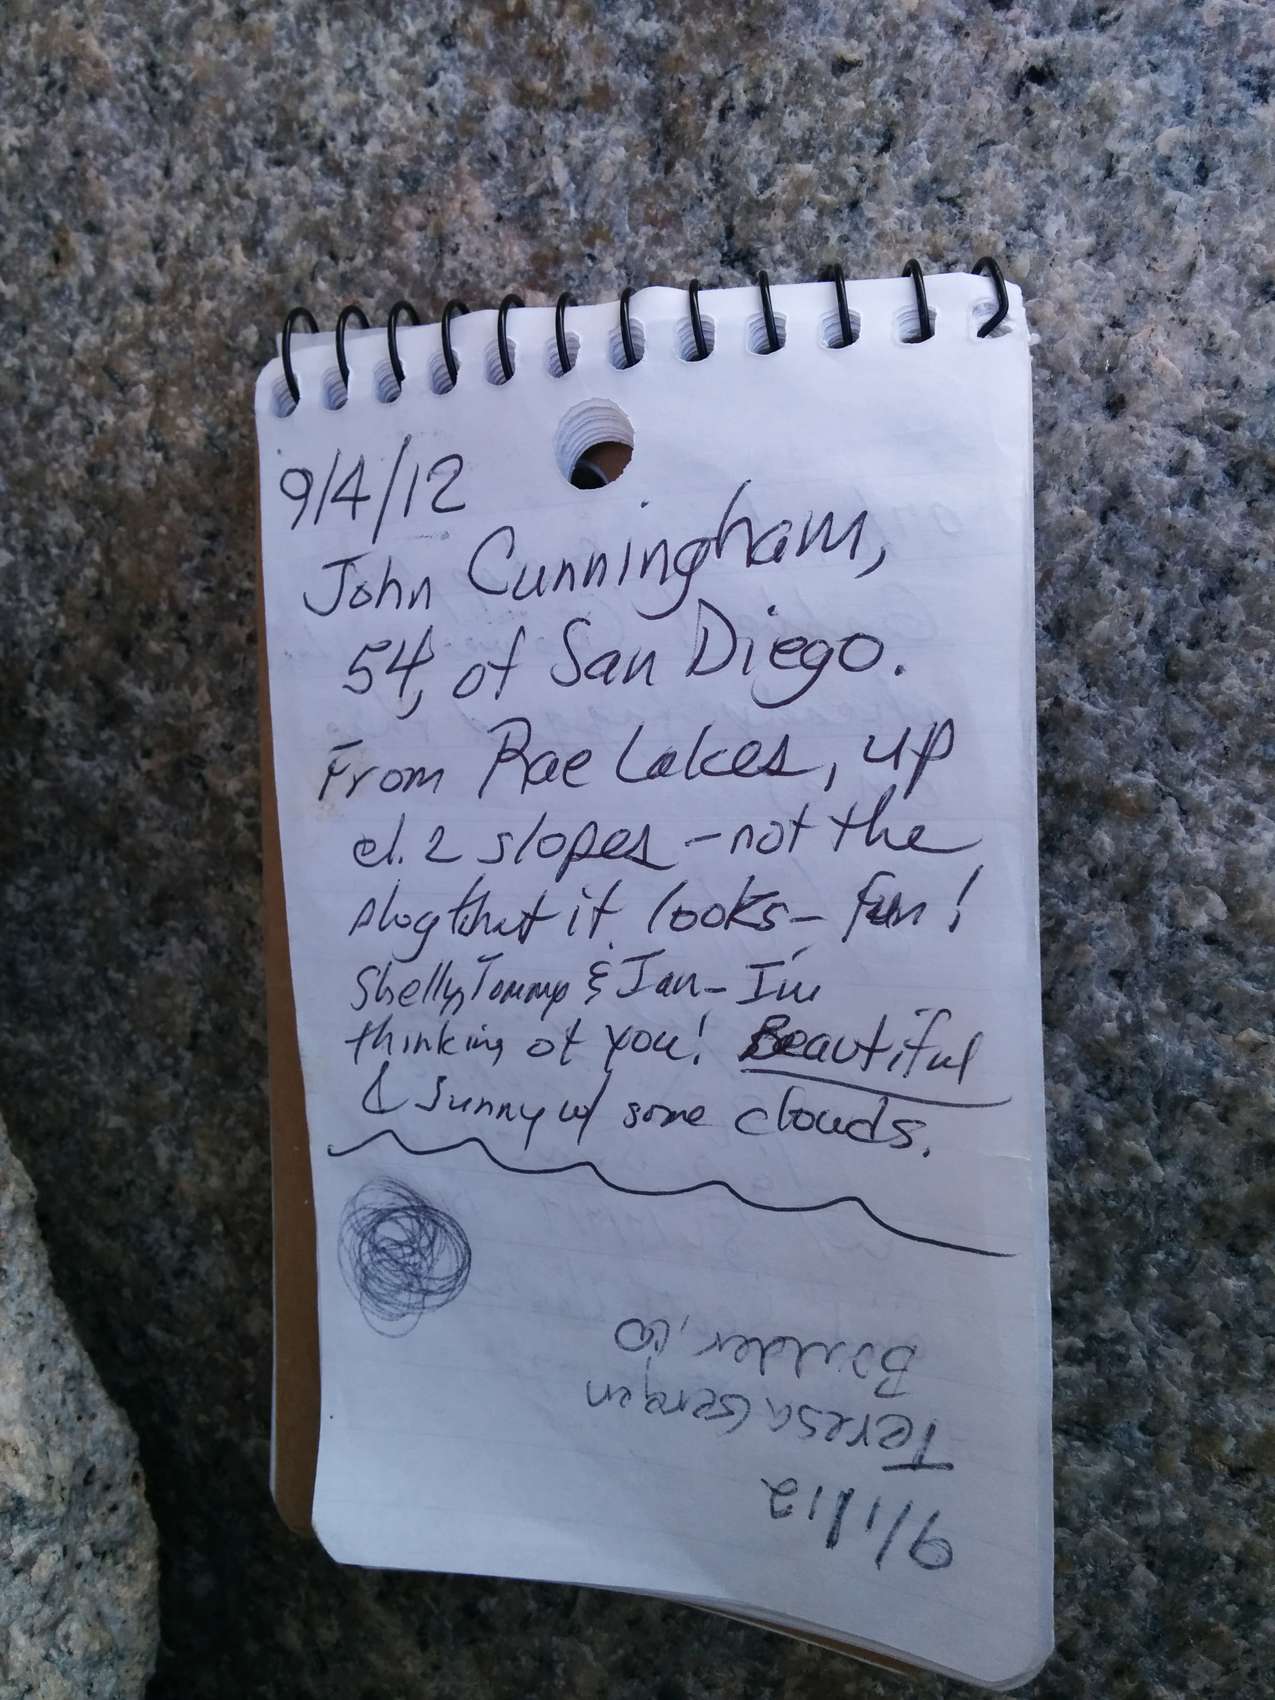 9/4/12
John Cunningham,
54, of San Diego.
From Rae Lakes, up
cl. 2 slopes - not the
slog that it looks - fun!
Shelly, Tommy & Jan - I'm
thinking of you! Beautiful
& sunny w/ some clouds.
9/1/12
Teresa Gergen
Boulder, CO